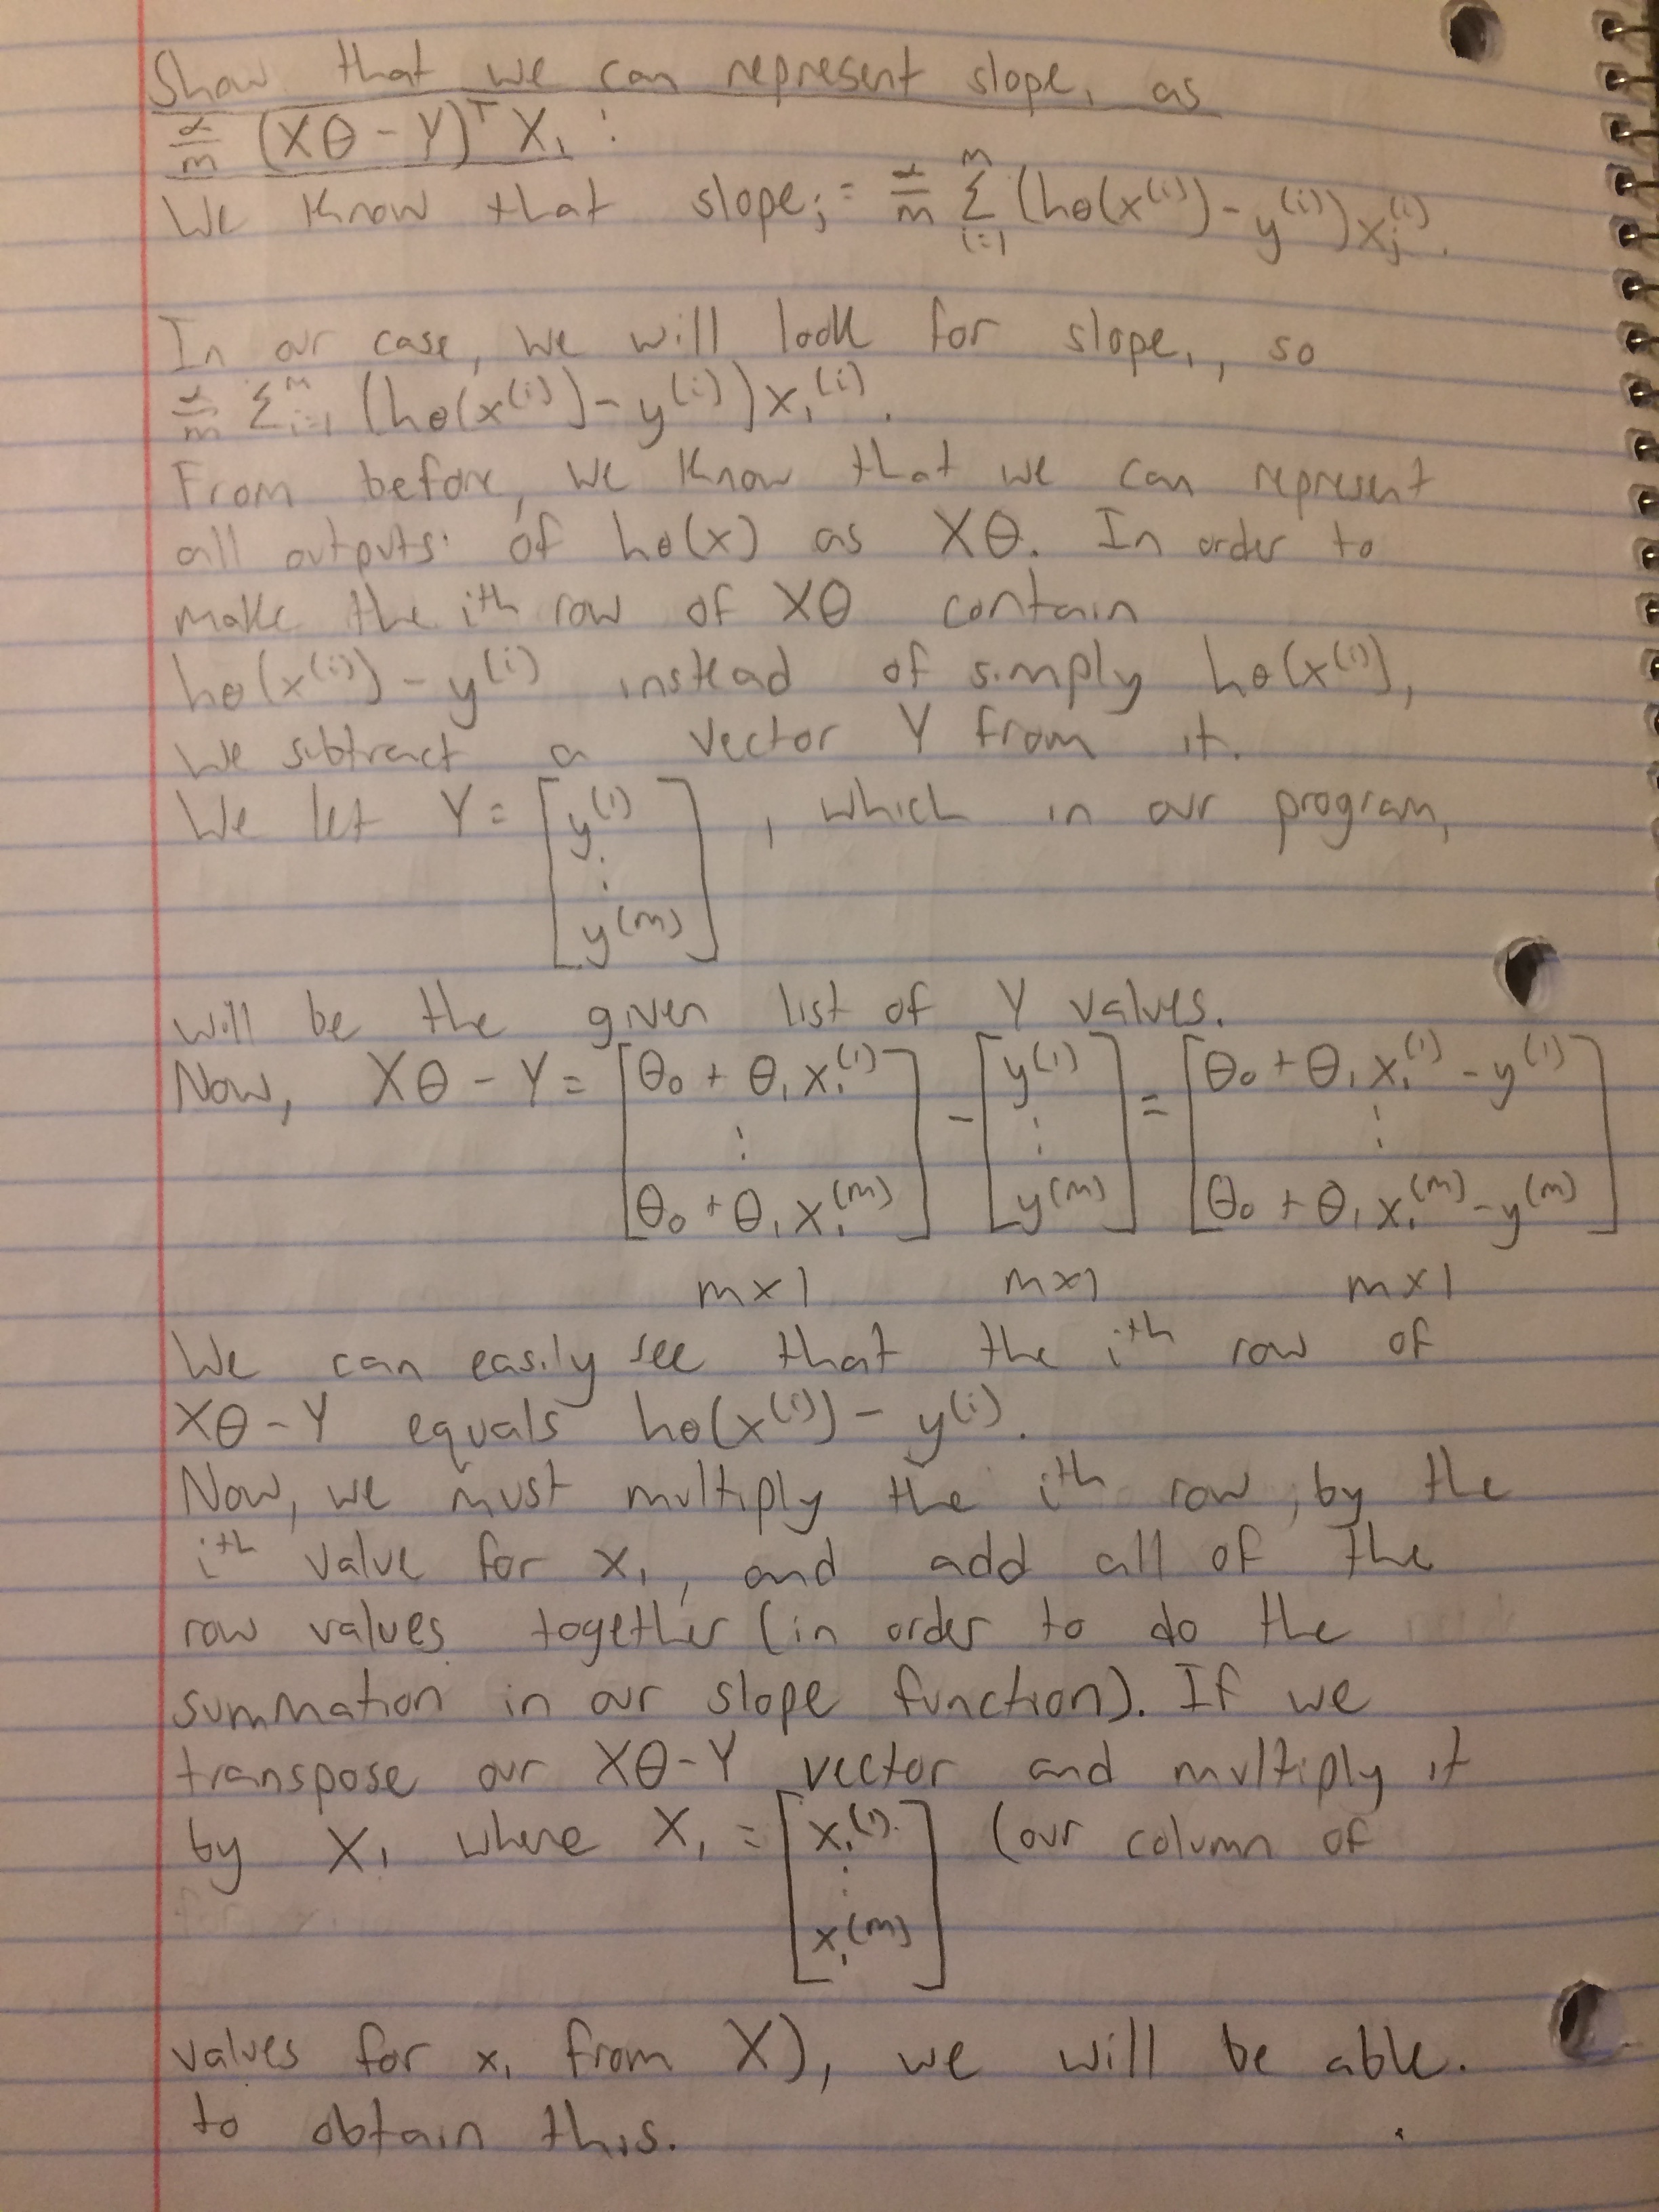 Show that we can represent slope₁ as
α/m (Xθ - Y)ᵀ X₁:
We know that slopeⱼ = α/m Σᵢ₌₁ᵐ (hθ(x⁽ⁱ⁾) - y⁽ⁱ⁾)xⱼ⁽ⁱ⁾.
In our case, we will look for slope₁, so
α/m Σᵢ₌₁ᵐ (hθ(x⁽ⁱ⁾) - y⁽ⁱ⁾)x₁⁽ⁱ⁾.
From before, we know that we can represent
all outputs of hθ(x) as Xθ. In order to
make the ith row of Xθ contain
hθ(x⁽ⁱ⁾) - y⁽ⁱ⁾ instead of simply hθ(x⁽ⁱ⁾),
we subtract a vector Y from it.
We let Y = [y⁽¹⁾ ⋮ y⁽ᵐ⁾], which in our program,
will be the given list of Y values.
Now, Xθ - Y = [θ₀ + θ₁x₁⁽¹⁾ ⋮ θ₀ + θ₁x₁⁽ᵐ⁾] - [y⁽¹⁾ ⋮ y⁽ᵐ⁾] = [θ₀ + θ₁x₁⁽¹⁾ - y⁽¹⁾ ⋮ θ₀ + θ₁x₁⁽ᵐ⁾ - y⁽ᵐ⁾]
mx1 mx1 mx1
We can easily see that the ith row of
Xθ - Y equals hθ(x⁽ⁱ⁾) - y⁽ⁱ⁾.
Now, we must multiply the ith row, by the
ith value for x₁ and add all of the
row values together (in order to do the
summation in our slope function). If we
transpose our Xθ-Y vector and multiply it
by X₁ where X₁ = [x₁⁽¹⁾ ⋮ x₁⁽ᵐ⁾] (our column of
values for x₁ from X), we will be able
to obtain this.